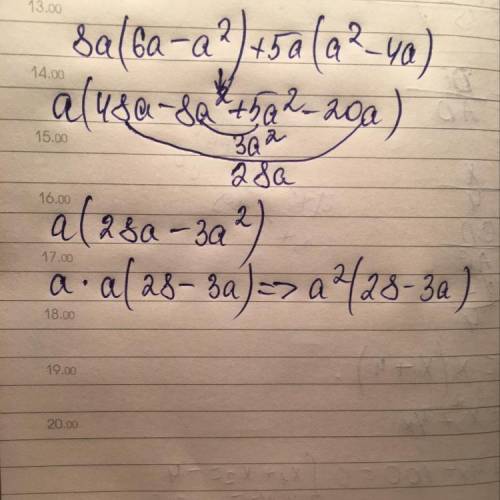 13.00
8a(6a-a²)+5a(a²-4a)
14.00
a(48a-8a²+5a²-20a)
15.00
3a²
28a
16.00
a(28a-3a²)
17.00
a·a(28-3a)=>a²(28-3a)
18.00
19.00
20.00